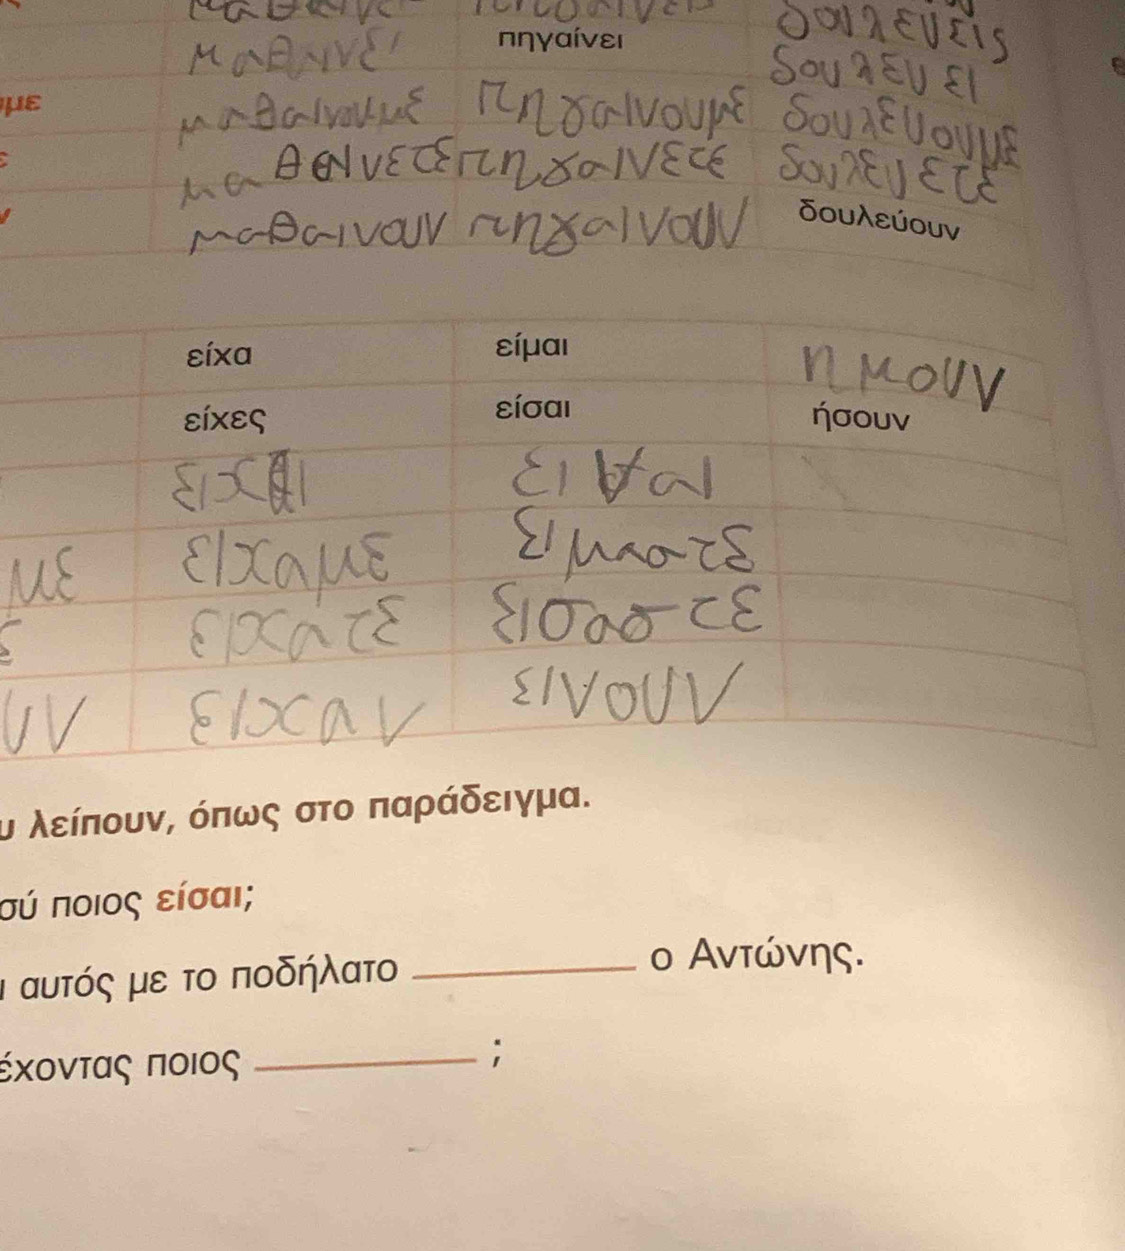 πηγαίνει δουλευεις
μαθαινει δουλευει
με μαθαινουμε πηγαινουμε δουλευουμε
μαθαινετε πηγαινετε δουλευετε
μαθαινουν πηγαινουν δουλεύουν
είχα είμαι ημουν
είχες είσαι ήσουν
ειναι
με ειχαμε ειμαστε
ειχατε εισαστε
υν ειχαν εινουν
λείπουν, όπως στο παράδειγμα.
σύ ποιος είσαι;
αυτός με το ποδήλατο ο Αντώνης.
έχοντας ποιος ;